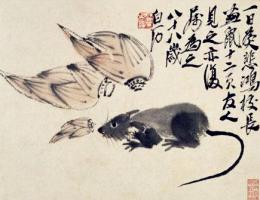 一日为悲鸿校长
画鼠十二页友人
见之亦复
属为之
八十八岁
白石